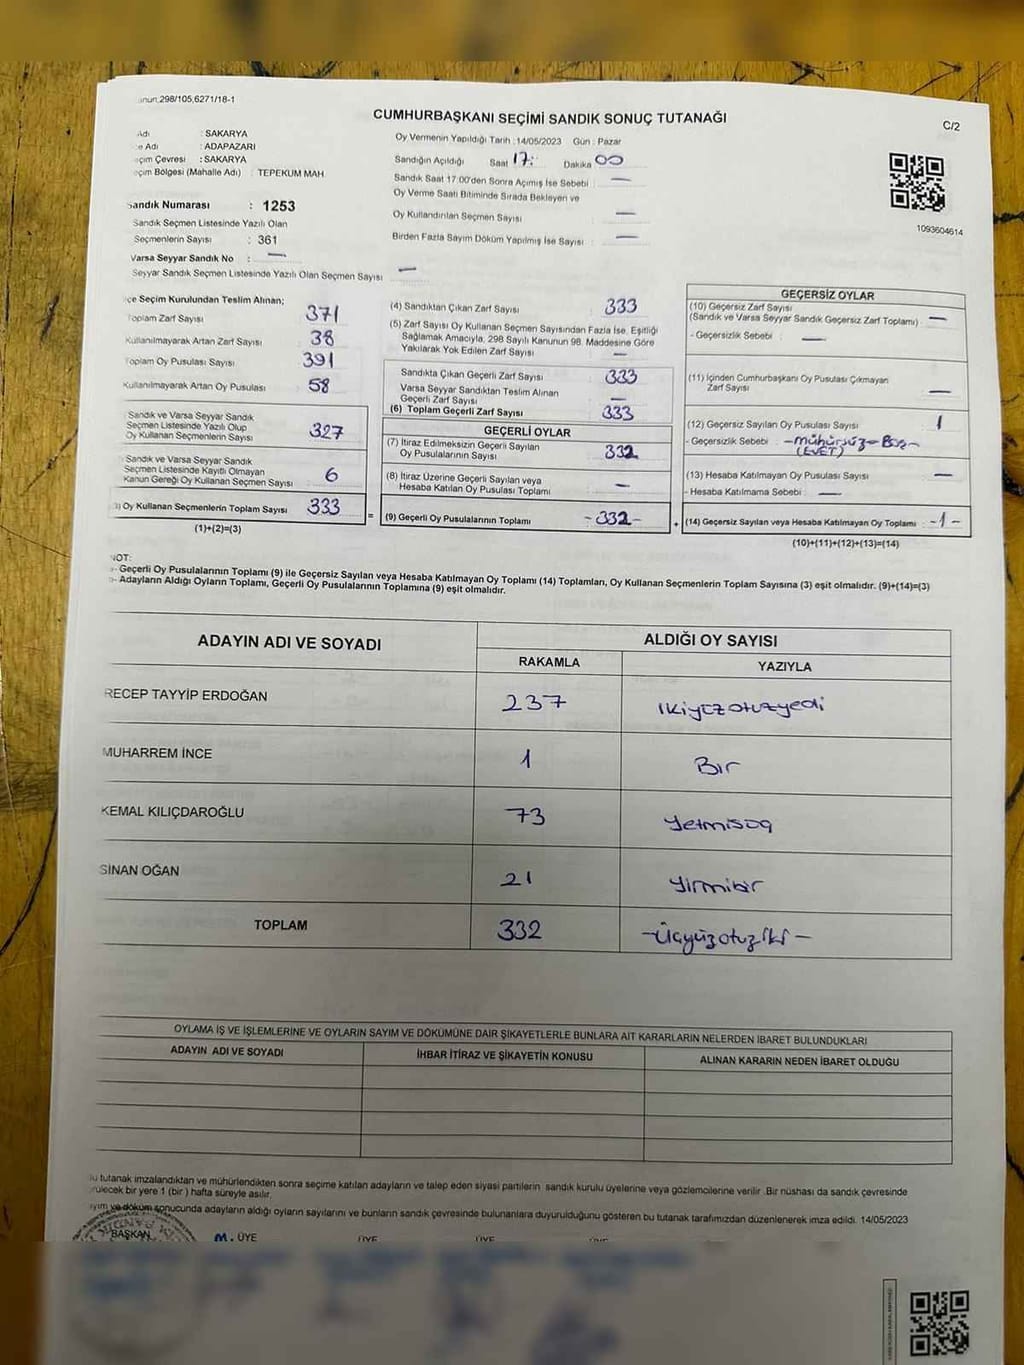 298/105,6271/18-1
CUMHURBAŞKANI SEÇİMİ SANDIK SONUÇ TUTANAĞI
C/2
Adı : SAKARYA
e Adı : ADAPAZARI
çim Çevresi : SAKARYA
çim Bölgesi (Mahalle Adı) : TEPEKUM MAH
Sandık Numarası : 1253
Sandık Seçmen Listesinde Yazılı Olan
Seçmenlerin Sayısı : 361
Varsa Seyyar Sandık No : —
Seyyar Sandık Seçmen Listesinde Yazılı Olan Seçmen Sayısı —
Oy Vermenin Yapıldığı Tarih :14/05/2023 Gün : Pazar
Sandığın Açıldığı Saat 17: Dakika 00
Sandık Saat 17:00'den Sonra Açımış İse Sebebi : —
Oy Verme Saati Bitiminde Sırada Bekleyen ve
Oy Kullandırılan Seçmen Sayısı —
Birden Fazla Sayım Döküm Yapılmış İse Sayısı : —
1093604614
çe Seçim Kurulundan Teslim Alınan;
Toplam Zarf Sayısı 371
Kullanılmayarak Artan Zarf Sayısı 38
Toplam Oy Pusulası Sayısı 391
Kullanılmayarak Artan Oy Pusulası 58
Sandık ve Varsa Seyyar Sandık
Seçmen Listesinde Yazılı Olup
Oy Kullanan Seçmenlerin Sayısı 327
Sandık ve Varsa Seyyar Sandık
Seçmen Listesinde Kayıtlı Olmayan
Kanun Gereği Oy Kullanan Seçmen Sayısı 6
) Oy Kullanan Seçmenlerin Toplam Sayısı 333 =
(1)+(2)=(3)
(4) Sandıktan Çıkan Zarf Sayısı 333
(5) Zarf Sayısı Oy Kullanan Seçmen Sayısından Fazla İse, Eşitliği
Sağlamak Amacıyla, 298 Sayılı Kanunun 98. Maddesine Göre
Yakılarak Yok Edilen Zarf Sayısı —
Sandıkta Çıkan Geçerli Zarf Sayısı 333
Varsa Seyyar Sandıktan Teslim Alınan
Geçerli Zarf Sayısı —
(6) Toplam Geçerli Zarf Sayısı 333
GEÇERLİ OYLAR
(7) İtiraz Edilmeksizin Geçerli Sayılan
Oy Pusulalarının Sayısı 332
(8) İtiraz Üzerine Geçerli Sayılan veya
Hesaba Katılan Oy Pusulası Toplamı —
(9) Geçerli Oy Pusulalarının Toplamı -332- +
GEÇERSİZ OYLAR
(10) Geçersiz Zarf Sayısı
(Sandık ve Varsa Seyyar Sandık Geçersiz Zarf Toplamı) —
- Geçersizlik Sebebi : —
(11) İçinden Cumhurbaşkanı Oy Pusulası Çıkmayan
Zarf Sayısı —
(12) Geçersiz Sayılan Oy Pusulası Sayısı : 1
- Geçersizlik Sebebi : -Mühürsüz-Boş-
(EVET)
(13) Hesaba Katılmayan Oy Pusulası Sayısı —
- Hesaba Katılmama Sebebi : —
(14) Geçersiz Sayılan veya Hesaba Katılmayan Oy Toplamı : -1-
(10)+(11)+(12)+(13)=(14)
NOT:
- Geçerli Oy Pusulalarının Toplamı (9) ile Geçersiz Sayılan veya Hesaba Katılmayan Oy Toplamı (14) Toplamları, Oy Kullanan Seçmenlerin Toplam Sayısına (3) eşit olmalıdır. (9)+(14)=(3)
- Adayların Aldığı Oyların Toplamı, Geçerli Oy Pusulalarının Toplamına (9) eşit olmalıdır.
ADAYIN ADI VE SOYADI ALDIĞI OY SAYISI
RAKAMLA YAZIYLA
RECEP TAYYİP ERDOĞAN 237 ikiyüzotuzyedi
MUHARREM İNCE 1 Bir
KEMAL KILIÇDAROĞLU 73 Yetmişüç
SİNAN OĞAN 21 Yirmibir
TOPLAM 332 -Üçyüzotuziki-
OYLAMA İŞ VE İŞLEMLERİNE VE OYLARIN SAYIM VE DÖKÜMÜNE DAİR ŞİKAYETLERLE BUNLARA AİT KARARLARIN NELERDEN İBARET BULUNDUKLARI
ADAYIN ADI VE SOYADI İHBAR İTİRAZ VE ŞİKAYETİN KONUSU ALINAN KARARIN NEDEN İBARET OLDUĞU
u tutanak imzalandıktan ve mühürlendikten sonra seçime katılan adayların ve talep eden siyasi partilerin sandık kurulu üyelerine veya gözlemcilerine verilir .Bir nüshası da sandık çevresinde
rülecek bir yere 1 (bir ) hafta süreyle asılır.
yım ve döküm sonucunda adayların aldığı oyların sayılarını ve bunların sandık çevresinde bulunanlara duyurulduğunu gösteren bu tutanak tarafımızdan düzenlenerek imza edildi. 14/05/2023
BAŞKAN M. ÜYE ÜYE ÜYE ÜYE